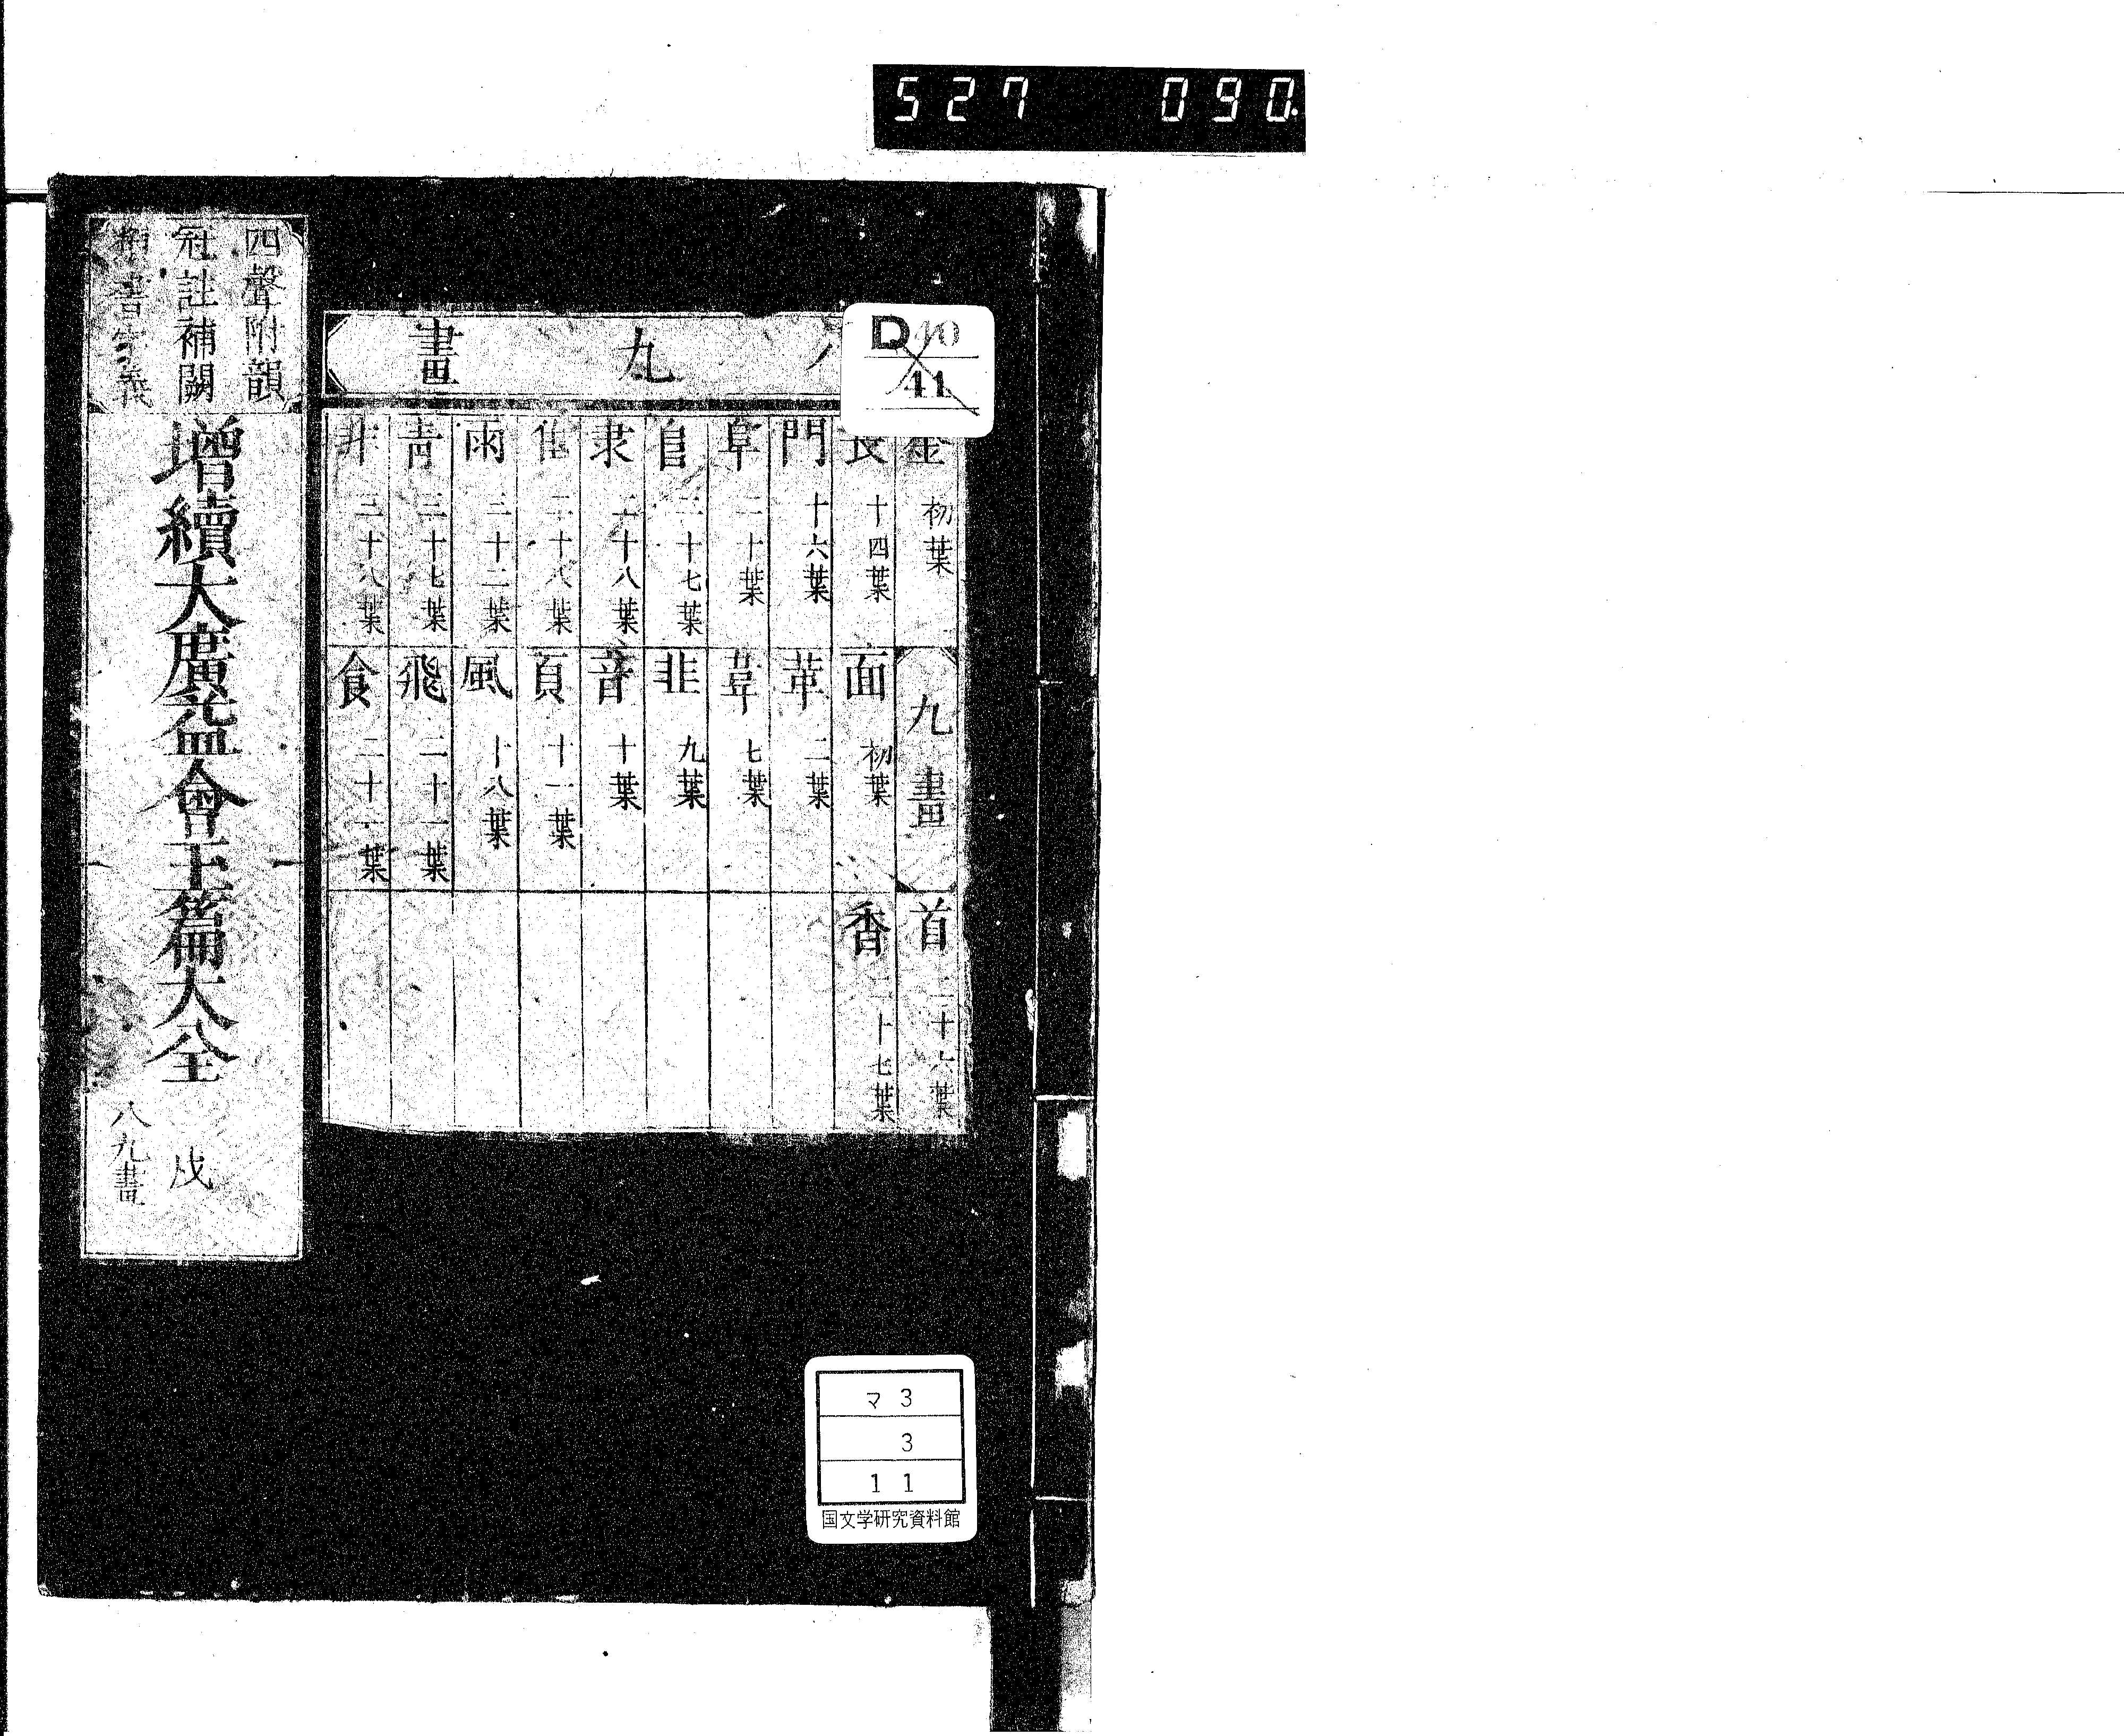 527 090
D 40
41
九畫
金 初葉
長 十四葉
門 十六葉
阜 二十葉
𨸏 二十七葉
隶 二十八葉
隹 二十八葉
雨 三十二葉
靑 三十七葉
非 三十八葉
九畫
面 初葉
革 二葉
韋 七葉
韭 九葉
音 十葉
頁 十一葉
風 十八葉
飛 二十一葉
食 二十一葉
首 二十六葉
香 二十七葉
四聲附韻
冠註補闕
增續大廣益會玉篇大全
戌
八九畫
マ 3
3
1 1
国文学研究資料館